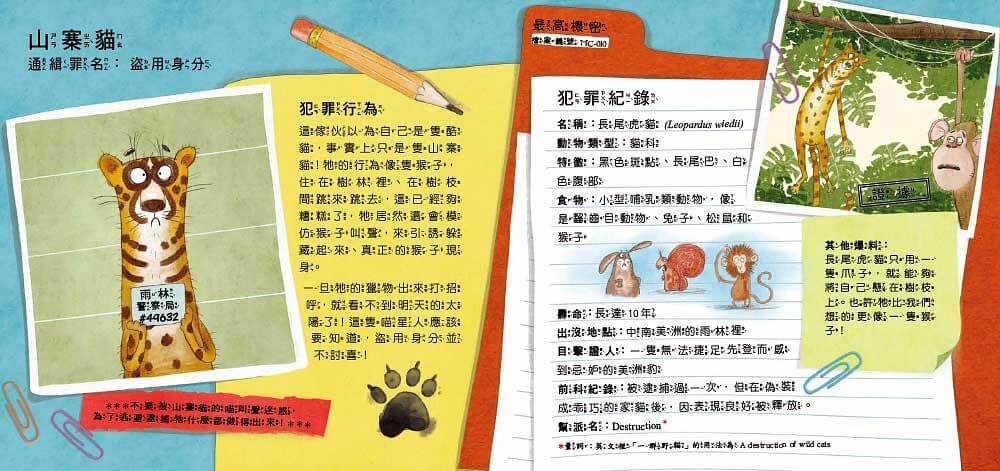 山寨貓
通緝罪名：盜用身分
雨林
警察局
#49632
***不要被山寨貓的喵叫聲迷惑，
為了逃避逮捕牠什麼都做得出來！***
犯罪行為
這傢伙以為自己是隻酷
貓，事實上只是隻山寨
貓！牠的行為像隻猴子，
住在樹林裡、在樹枝
間跳來跳去，這已經夠
糟糕了，牠居然還會模
仿猴子叫聲，來引誘躲
藏起來、真正的猴子現
身。
一旦牠的獵物出來打招
呼，就看不到明天的太
陽了！這隻喵星人應該
要知道，盜用身分並
不討喜！
最高機密
檔案編號：MC-010
犯罪紀錄
名稱：長尾虎貓 (Leopardus wiedii)
動物類型：貓科
特徵：黑色斑點、長尾巴、白
色腹部
食物：小型哺乳類動物，像
是齧齒目動物、兔子、松鼠和
猴子。
壽命：長達10年
出沒地點：中南美洲的雨林裡
目擊證人：一隻無法捷足先登而感
到忌妒的美洲豹
前科紀錄：被逮捕過一次，但在偽裝
成乖巧的家貓後，因表現良好被釋放。
幫派名：Destruction*
*量詞：英文裡「一群野貓」的用法為 A destruction of wild cats
證據
其他爆料：
長尾虎貓只用一
隻爪子，就能夠
將自己懸在樹枝
上。也許牠比我們
想的更像一隻猴
子！